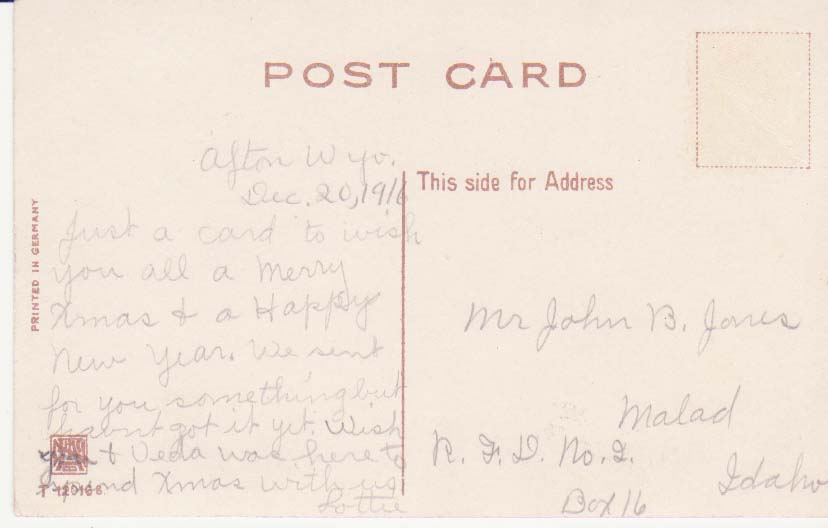 POST CARD
This side for Address
PRINTED IN GERMANY
Afton Wyo.
Dec. 20, 1916
Just a card to wish
you all a Merry
Xmas & a Happy
New Year. We sent
for you something but
havnt got it yet. Wish
you & Veda was here to
spend Xmas with us
Lottie
Mr John B. Jones
Malad
R. F. D. No. 2.
Idaho
Box 16